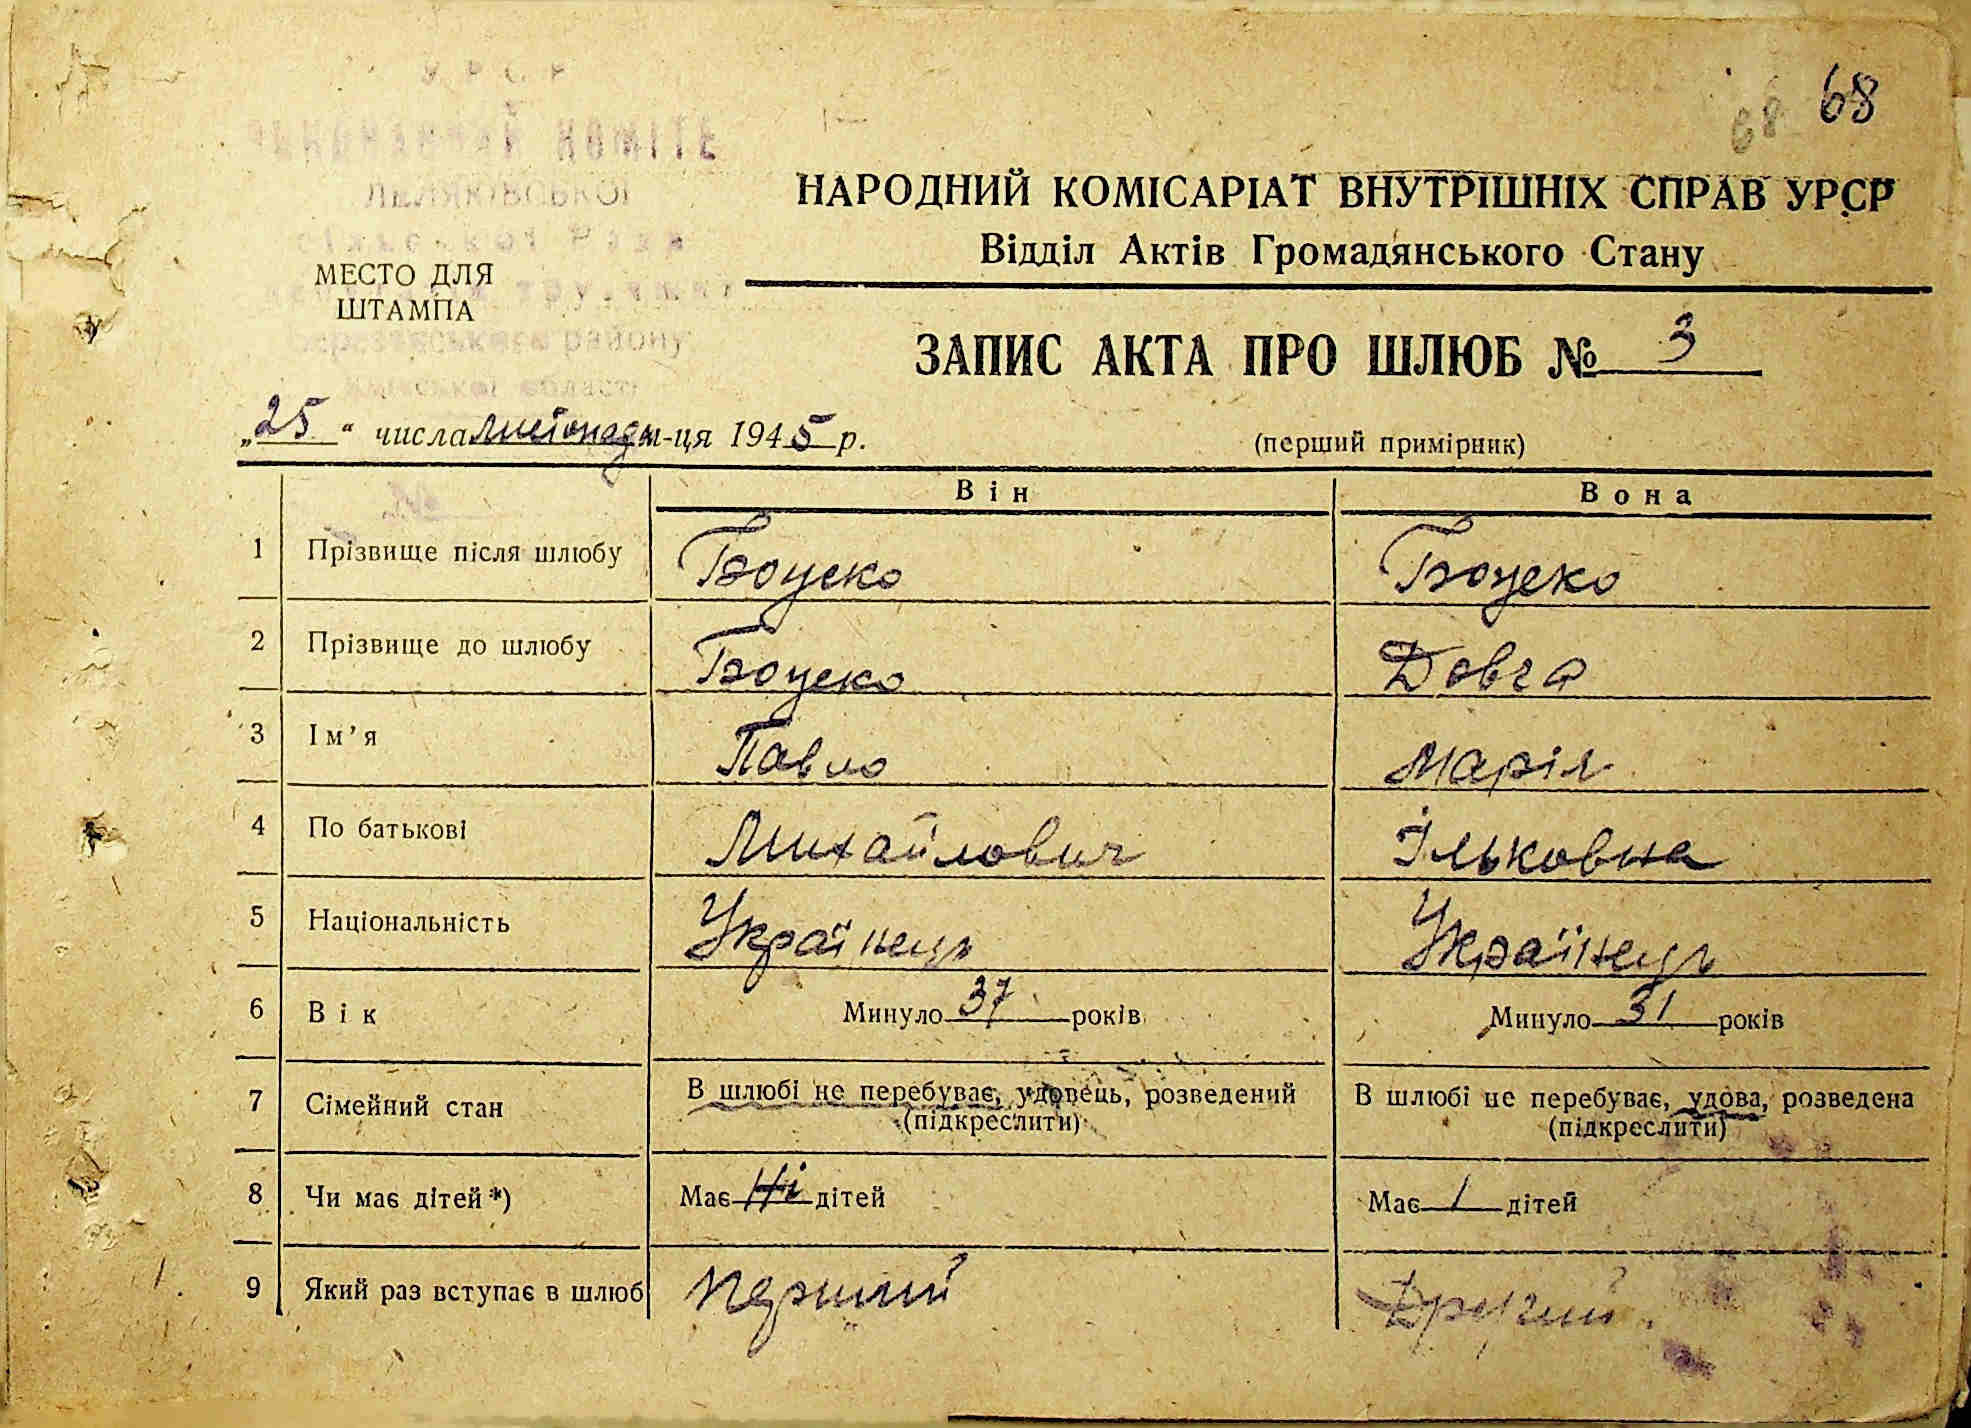 68
68
УРСР
ВИКОНАВЧИЙ КОМІТЕ
ЛЕЛЯКІВСЬКОЇ
НАРОДНИЙ КОМІСАРІАТ ВНУТРІШНІХ СПРАВ УРСР
Відділ Актів Громадянського Стану
МЕСТО ДЛЯ
ШТАМПА
району
області
ЗАПИС АКТА ПРО ШЛЮБ № 3
„25“ числа листопада м-ця 1945 р.
(перший примірник)
Він Вона
1 Прізвище після шлюбу Боцеко Боцеко
2 Прізвище до шлюбу Боцеко Довга
3 Ім'я Павло Марія
4 По батькові Михайлович Ільковна
5 Національність Українець Українець
6 Вік Минуло 37 років Минуло 31 років
7 Сімейний стан В шлюбі не перебуває, удовець, розведений В шлюбі не перебуває, удова, розведена
(підкреслити) (підкреслити)
8 Чи має дітей*) Має Ні дітей Має 1 дітей
9 Який раз вступає в шлюб перший Другий